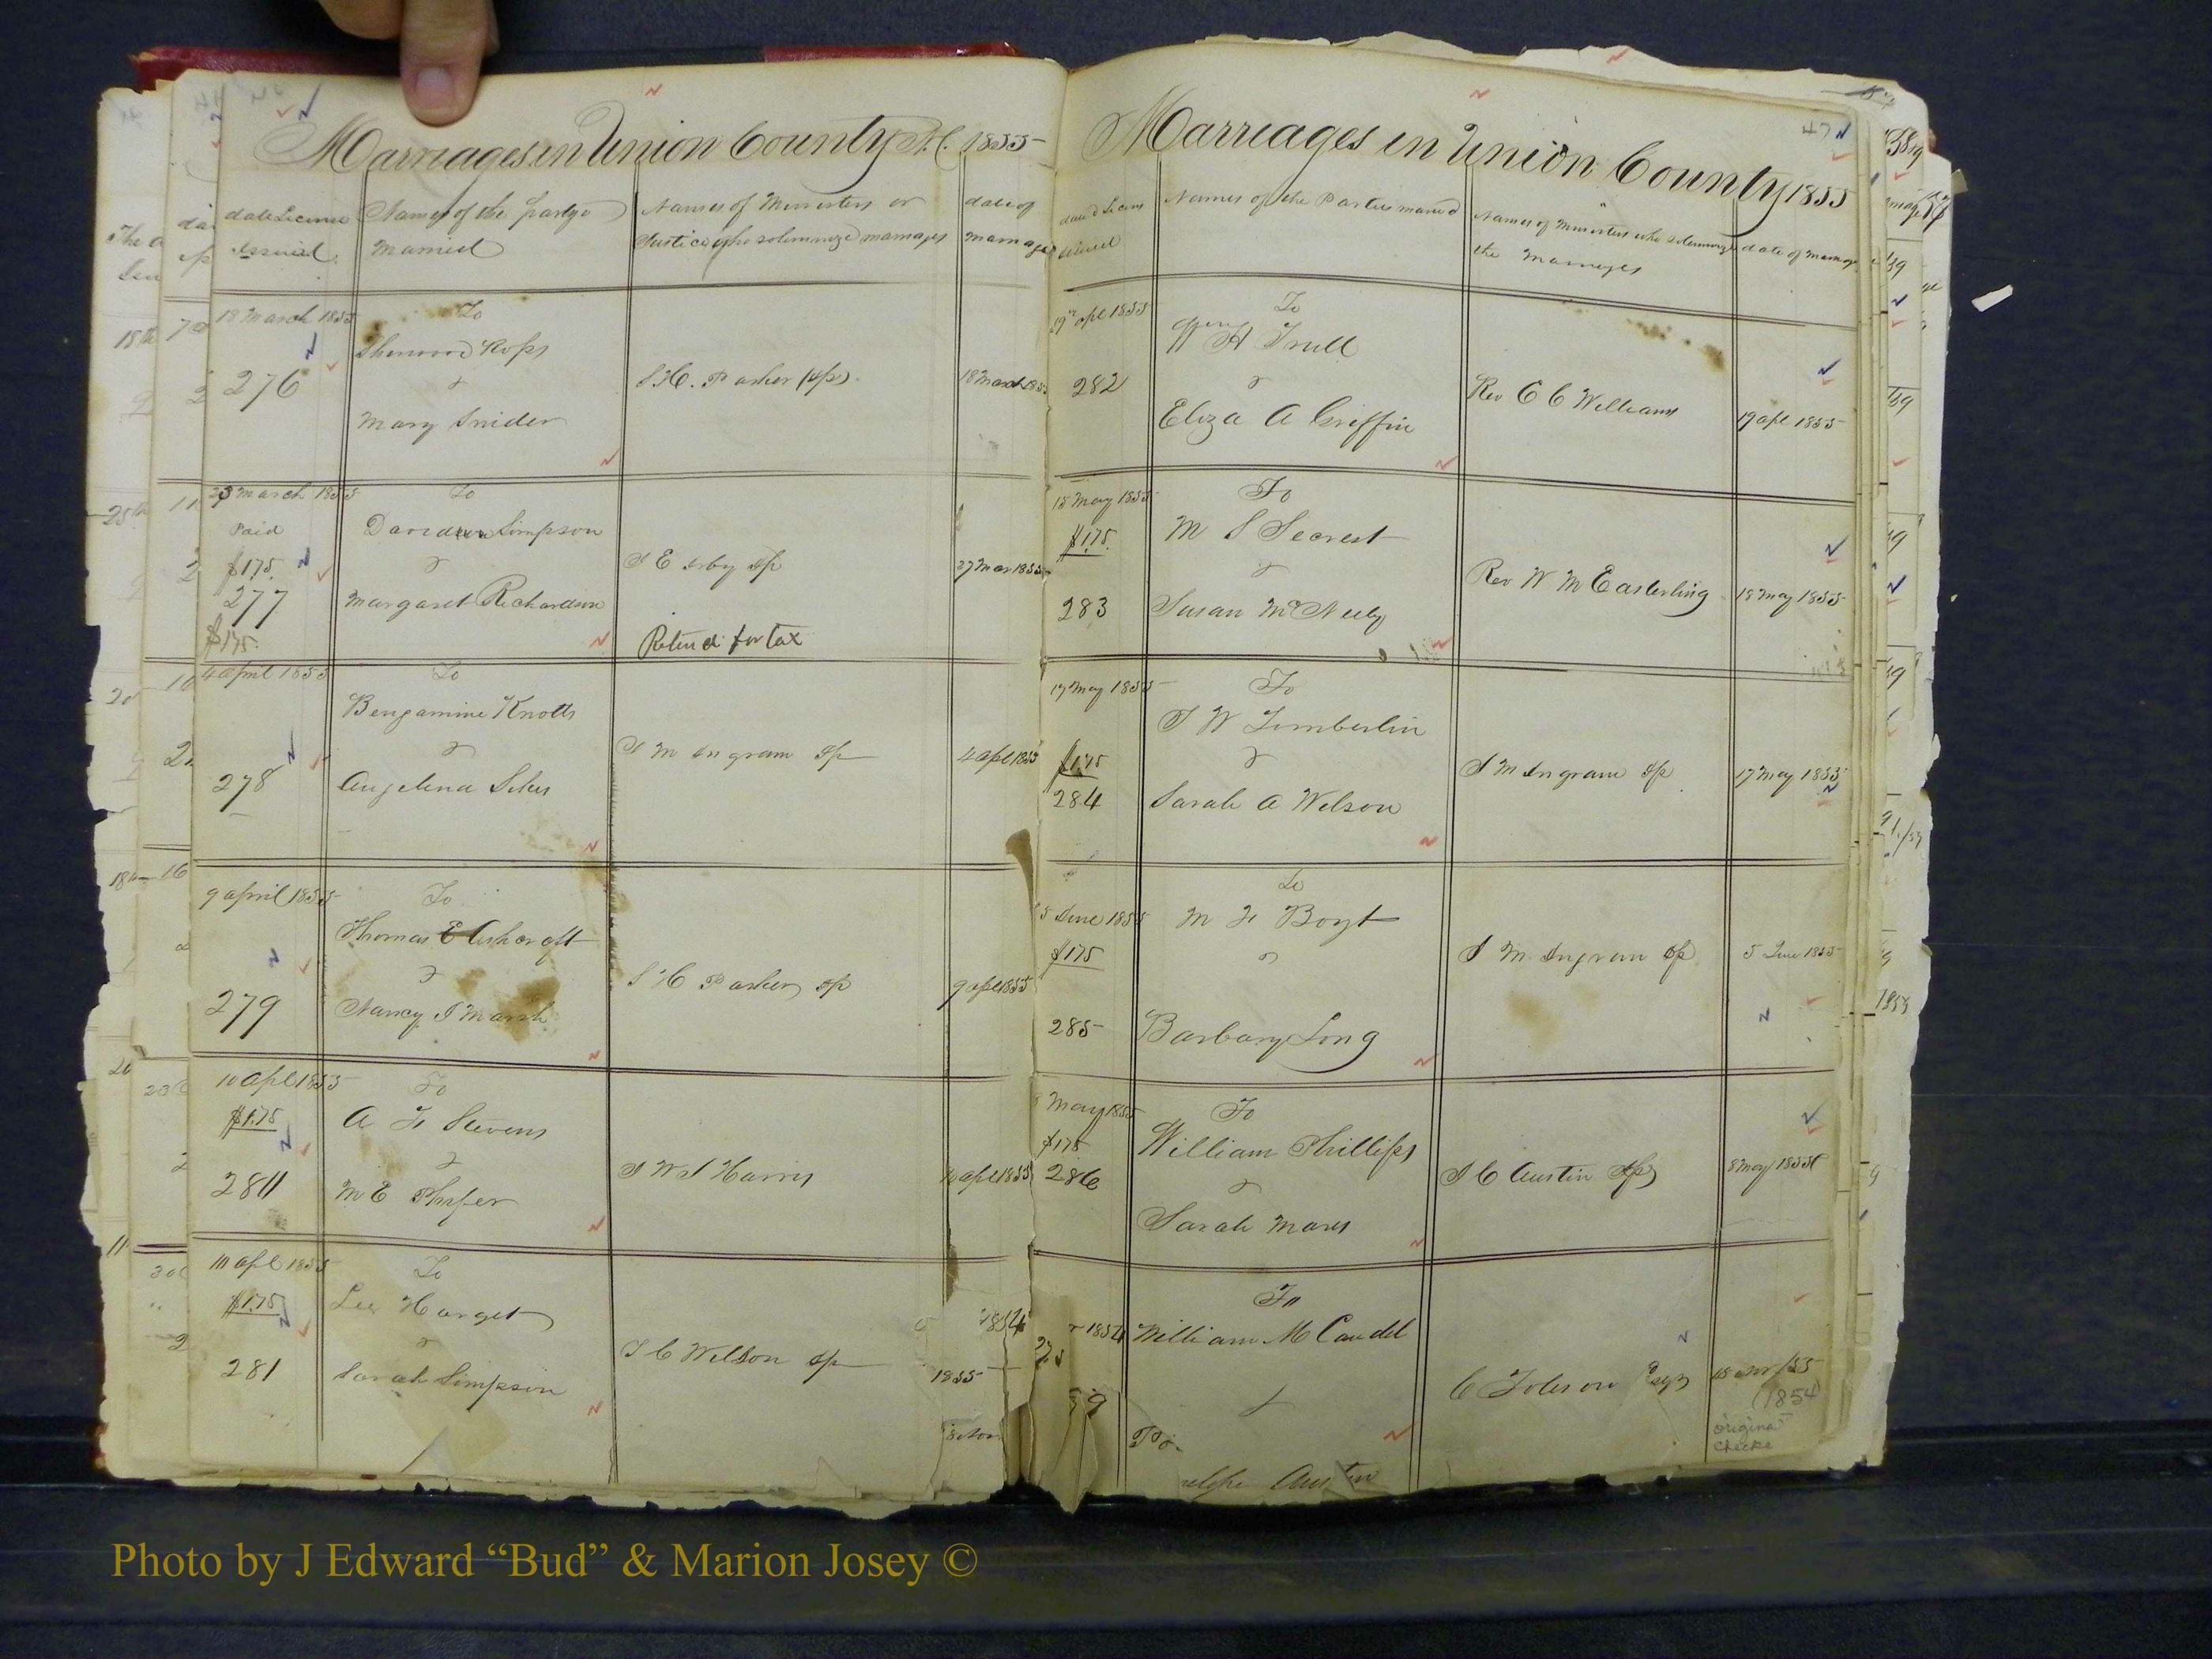 Marriages in Union County N.C. 1855
date License Issued
Names of the partys Married
Names of Ministers or Justices who solemnized marriages
date of marriage
18 March 1855
276
To
Sherwood Ross
&
Mary Snider
S H. Parker (Jp)
18 March 1855
23 March 1855
Paid
$175.
277
$175.
To
Simpson
&
Margaret Richardson
J E Irby Jp
Retur d for tax
27 Mar 1855
4 april 1855
278
To
Bengamine Knotts
&
Angelena Sikes
J M Ingram Jp
4 apl 1855
9 april 1855
279
To
Thomas E Ashcraft
&
Nancy J Marsh
S H Parker Jp
9 apl 1855
10 Apl 1855
$1.75
280
To
A F Stevens
&
M E Phifer
J W S Harris
10 apl 1855
10 apl 1855
$1.75
281
To
Lee Harget
&
Sarah Simpson
J C Wilson Jp
1854
1855
Marriages in Union County 1855
47
date d Licens issued
Names of the Parties maried
Names of Ministers who solemnize the Marriages
date of marriage
19th apl 1855
282
To
H Trull
&
Eliza A Griffin
Rev E C Williams
19 apl 1855
15 May 1855
$1.75.
283
To
M S Secrest
&
Susan McNeely
Rev W M Easterling
18 May 1855
17 May 1855
$1.75
284
To
J W Timberlin
&
Sarah A Wilson
J M Ingram Jp
17 May 1855
5 June 1855
$175
285
To
M F Boyt
&
Barbary Long
J M. Ingram Jp
5 June 1855
8 May 1855
$175
286
To
William Phillips
&
Sarah Mares
J C Austin Jp
8 May 1855
1854
To
William M Caudel
&
Austin
Esqr
(1854)
original
checks
Photo by J Edward “Bud” & Marion Josey ©